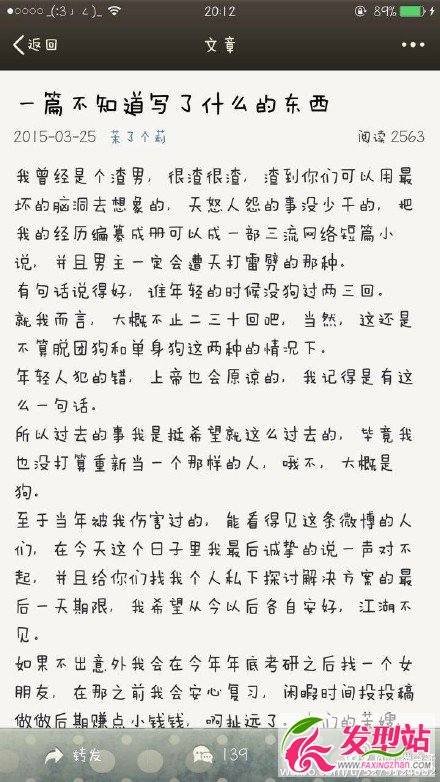 _(:3」∠)_ 20:12 89%
返回 文章
一篇不知道写了什么的东西
2015-03-25 茉了个莉 阅读 2563
我曾经是个渣男，很渣很渣，渣到你们可以用最
坏的脑洞去想象的，天怒人怨的事没少干的，把
我的经历编纂成册可以成一部三流网络短篇小
说，并且男主一定会遭天打雷劈的那种。
有句话说得好，谁年轻的时候没狗过两三回。
就我而言，大概不止二三十回吧，当然，这还是
不算脱团狗和单身狗这两种的情况下。
年轻人犯的错，上帝也会原谅的，我记得是有这
么一句话。
所以过去的事我是挺希望就这么过去的，毕竟我
也没打算重新当一个那样的人，哦不，大概是
狗。
至于当年被我伤害过的，能看得见这条微博的人
们，在今天这个日子里我最后诚挚的说一声对不
起，并且给你们找我个人私下探讨解决方案的最
后一天期限，我希望从今以后各自安好，江湖不
见。
如果不出意外我会在今年年底考研之后找一个女
朋友，在那之前我会安心复习，闲暇时间投投稿
做做后期赚点小钱钱，啊扯远了。
转发 139
发型站
WWW.FAXINGZHAN.COM